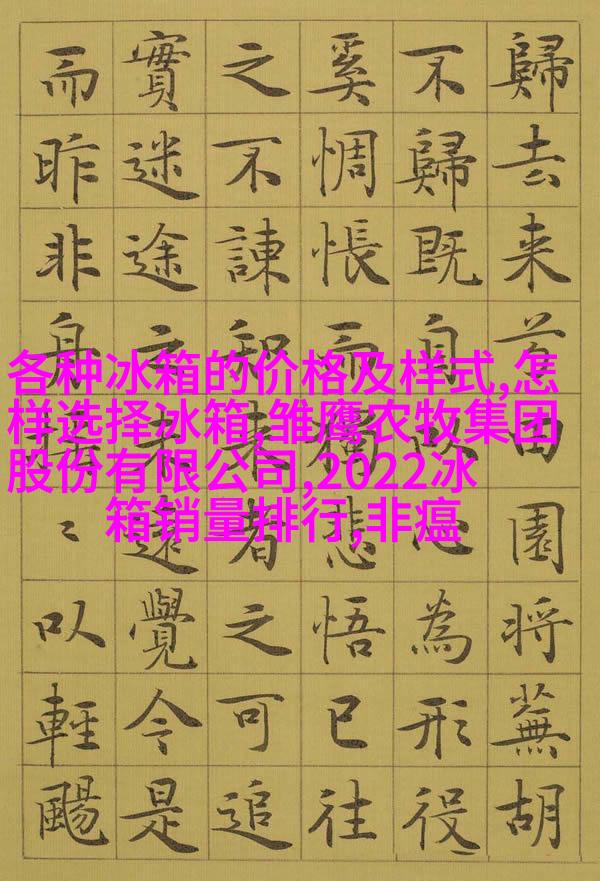 歸去来兮田園将蕪胡
不歸既自以心為形役
奚惆悵而獨悲悟已往
之不諫知来者之可追
實迷途其未遠覺今是
而昨非舟搖〻以輕颺
各种冰箱的价格及样式,怎
样选择冰箱,雏鹰农牧集团
股份有限公司,2022冰
箱销量排行,非瘟